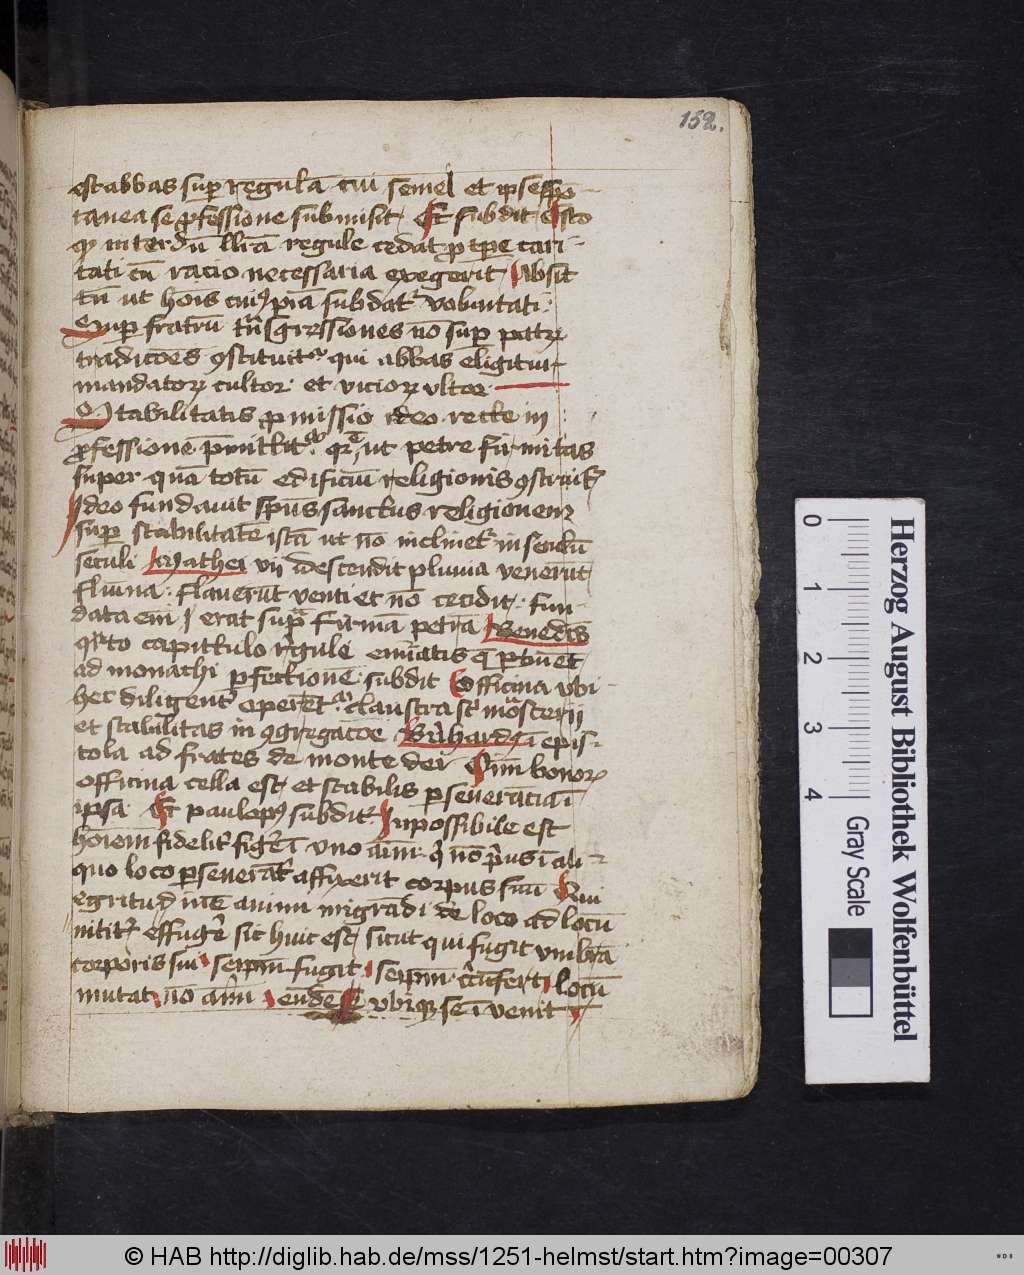 152.
est abbas sup regulā cui semel et ipse spō
tanea se ꝓfessione submisit Et subdit Esto
qꝫ interdū llrā regule cedat ꝓ tpe cari
tati cū racio necessaria exegerit Absit
tn̄ ut hoīs cuiꝰ pia subdat᷑ voluntati
Sup fratrū tn̄sgressiones nō sup patrꝝ
tradicōes ꝯstituit᷑ qui abbas eligitur
mandatorꝝ cultor et viciorꝝ vltor
Stabilitatis ꝓmissio ideo recte in
ꝓfessione p̄mittit᷑ ut petre firmitas
super quā totū edificiū religionis ꝯstruit᷑
Ideo fundauit spūs sanctus religionem
sup stabilitatē istā ut nō inclinet᷑ in seculū
seculi Mathei vij descendit pluuia venerūt
flumīna flauerūt venti et nō cecidit fun
data em̄ erat sup̄ firmā petrā Benedc̄s
qrto capittulo regule em̄iatis q ꝑtinēt
ad monachi ꝑfectionē subdit Officina vbi
hec diligent᷑ operet᷑ claustra st̄ mōsterij
et stabilitas in ꝯgregacōe Bn̄hardꝰ ī epis
tola ad frates de monte dei Sim̄ bonorꝝ
officina cella est et stabilis ꝑseuerācia ī
ipsa Et paulopꝰ subdit᷑ Inpossibile est
hoīem fidelit᷑ figē ī vno aīm̄ q̄ nō p̄us ī ali
quo loco ꝑseuerāt᷑ affixerit corpus suū Qui
egritudinē animi migrādi de loco ad locū
nitit᷑ effugē sic huic est sicut qui fugit vmbrā
corporis sui seipm̄ fugit seipm̄ cūfert locū
mutat nō aīm̄ eūdē se vbiqꝫ se īvenit
Herzog August Bibliothek Wolfenbüttel
0 1 2 3 4
Gray Scale
© HAB http://diglib.hab.de/mss/1251-helmst/start.htm?image=00307
WDB